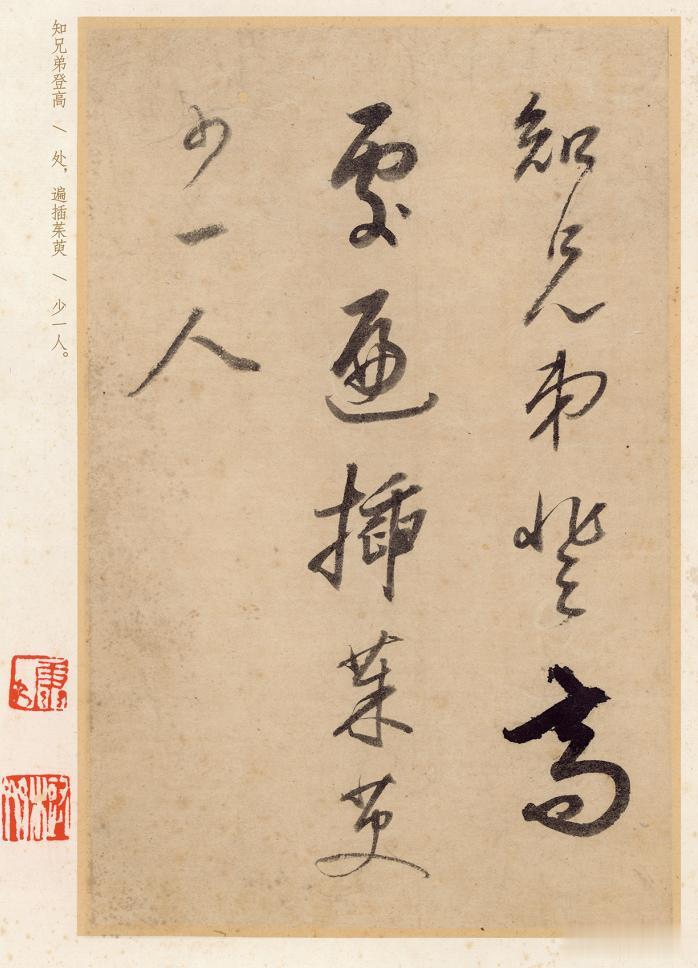 知兄弟登高
處遍插茱萸
少一人
知兄弟登高 \ 处，遍插茱萸 \ 少一人。